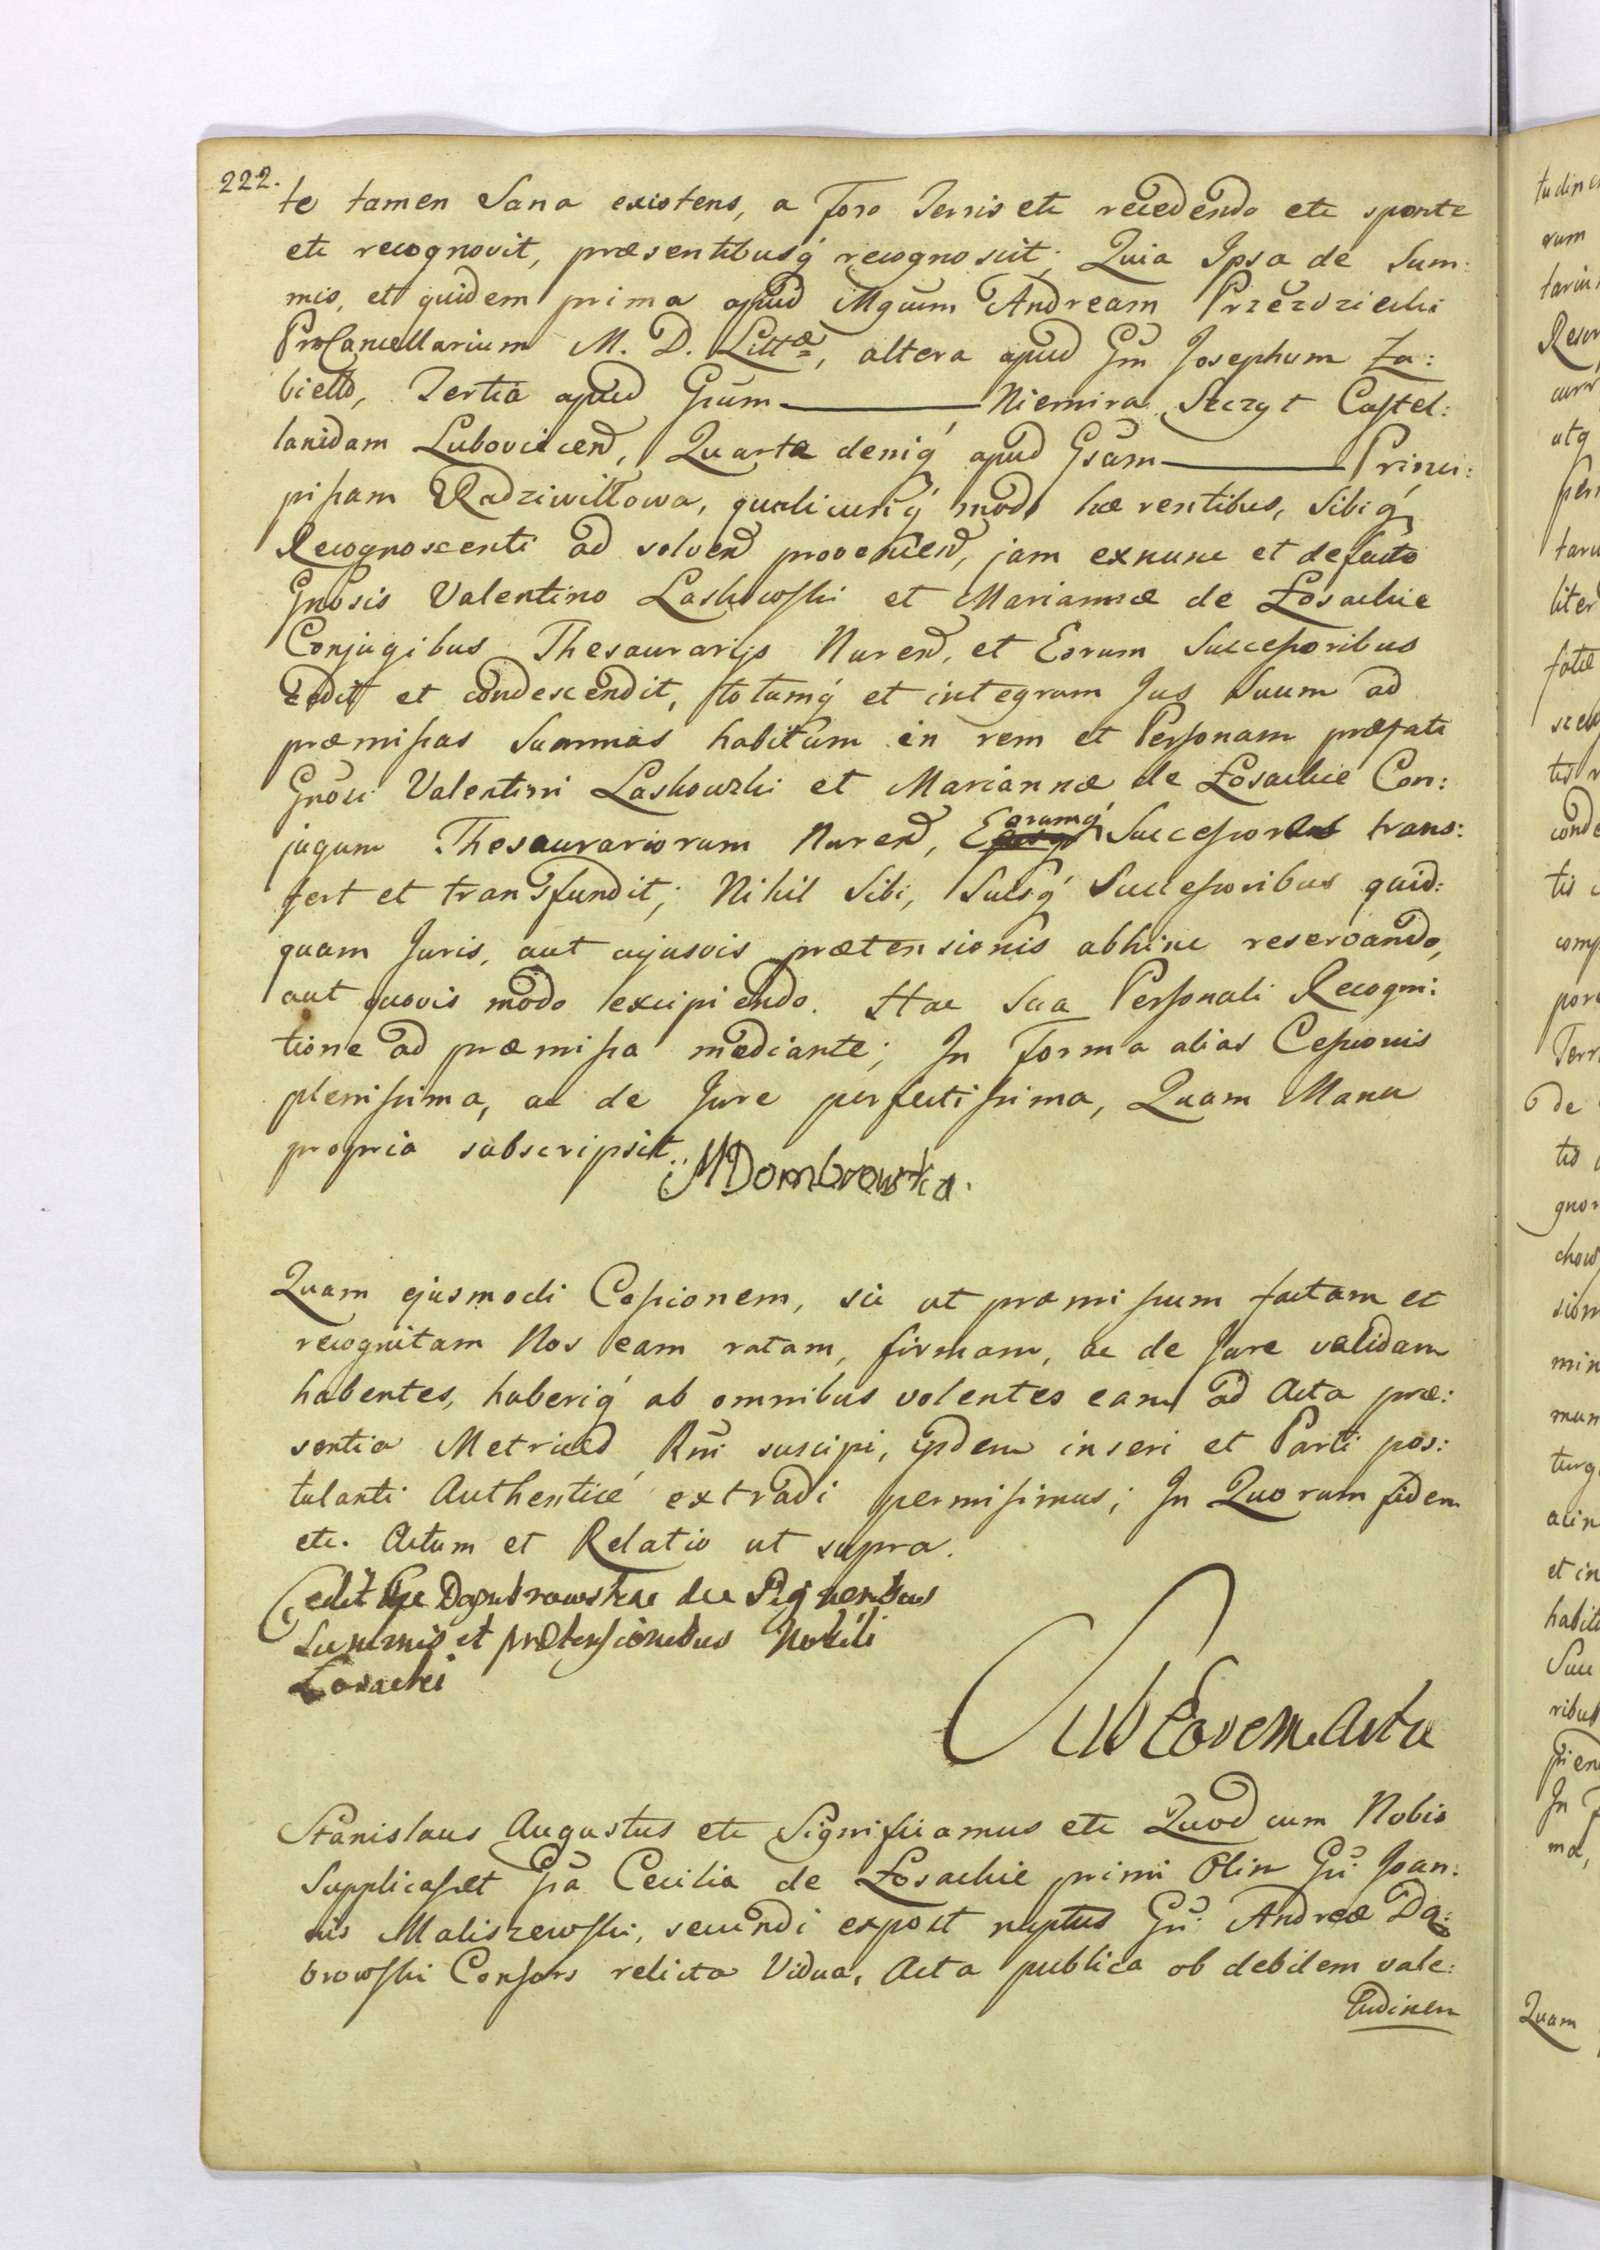 222.
te tamen Sana existens, a Foro Terris etc recedendo etc sponte
etc recognovit, præsentibusq́ recognoscit; Quia Ipsa de Sum:
mis, et quidem prima apud Mgcum Andream Przezdziecki
ProCancellarium M. D. Littæ, altera apud Gm Josephum Za:
biello, Tertia apud Gsum ——— Niemira Szczyt Castel:
lanidam Luboviecen, Quarta deniq́ apud Gsam ——— Princi:
pissam Radziwiłłowa, qualicunq́ modo hærentibus, Sibiq́
Recognoscenti ad solven provenien, jam exnunc et defacto
Gnosis Valentino Laskowski et Mariannæ de Łosackie
Conjugibus Thesaurarijs Nuren, et Eorum Successoribus
cedit et condescendit, totumq́ et integrum Jus Suum ad
præmissas Summas habitum in rem et Personam præfati
Gnosi Valentini Laskowski et Mariannæ de Łosackie Con:
jugum Thesaurariorum Nuren, Eorumq́ Successores trans:
fert et transfundit; Nihil Sibi, Suisq́ Successoribus quid:
quam Juris, aut cujusvis prætensionis abhinc reservando,
aut quovis modo excipiendo. Hac Sua Personali Recogni:
tione ad præmissa mediante; In Forma alias Cessionis
plenissima, ac de Jure perfectissima, Quam Manu
propria subscripsit.. MDombrowska.
Quam ejusmodi Cessionem, sic ut præmissum factam et
recognitam Nos eam ratam, firmam, ac de Jure validam
habentes, haberiq́ ab omnibus volentes eam ad Acta præ:
sentia Metrices Rni suscipi, ijsdem inseri et Parti pos:
tulanti Authenticé extradi permisimus; In Quorum fidem
etc. Actum et Relatio ut supra.
Cedit Gæ Dombrowskae de Pignenbus
Summis et prætensionibus Nobili
Łosacki
Sub Eodem Actu
Stanislaus Augustus etc Significamus etc Quod cum Nobis
Supplicasset Gsa Cecilia de Łosackie primi Olim Gsi Joan:
nis Maliszewski, secundi expost nuptus Gsi Andreæ Dą:
browski Consors relicta Vidua, Acta publica ob debilem vale:
tudinem